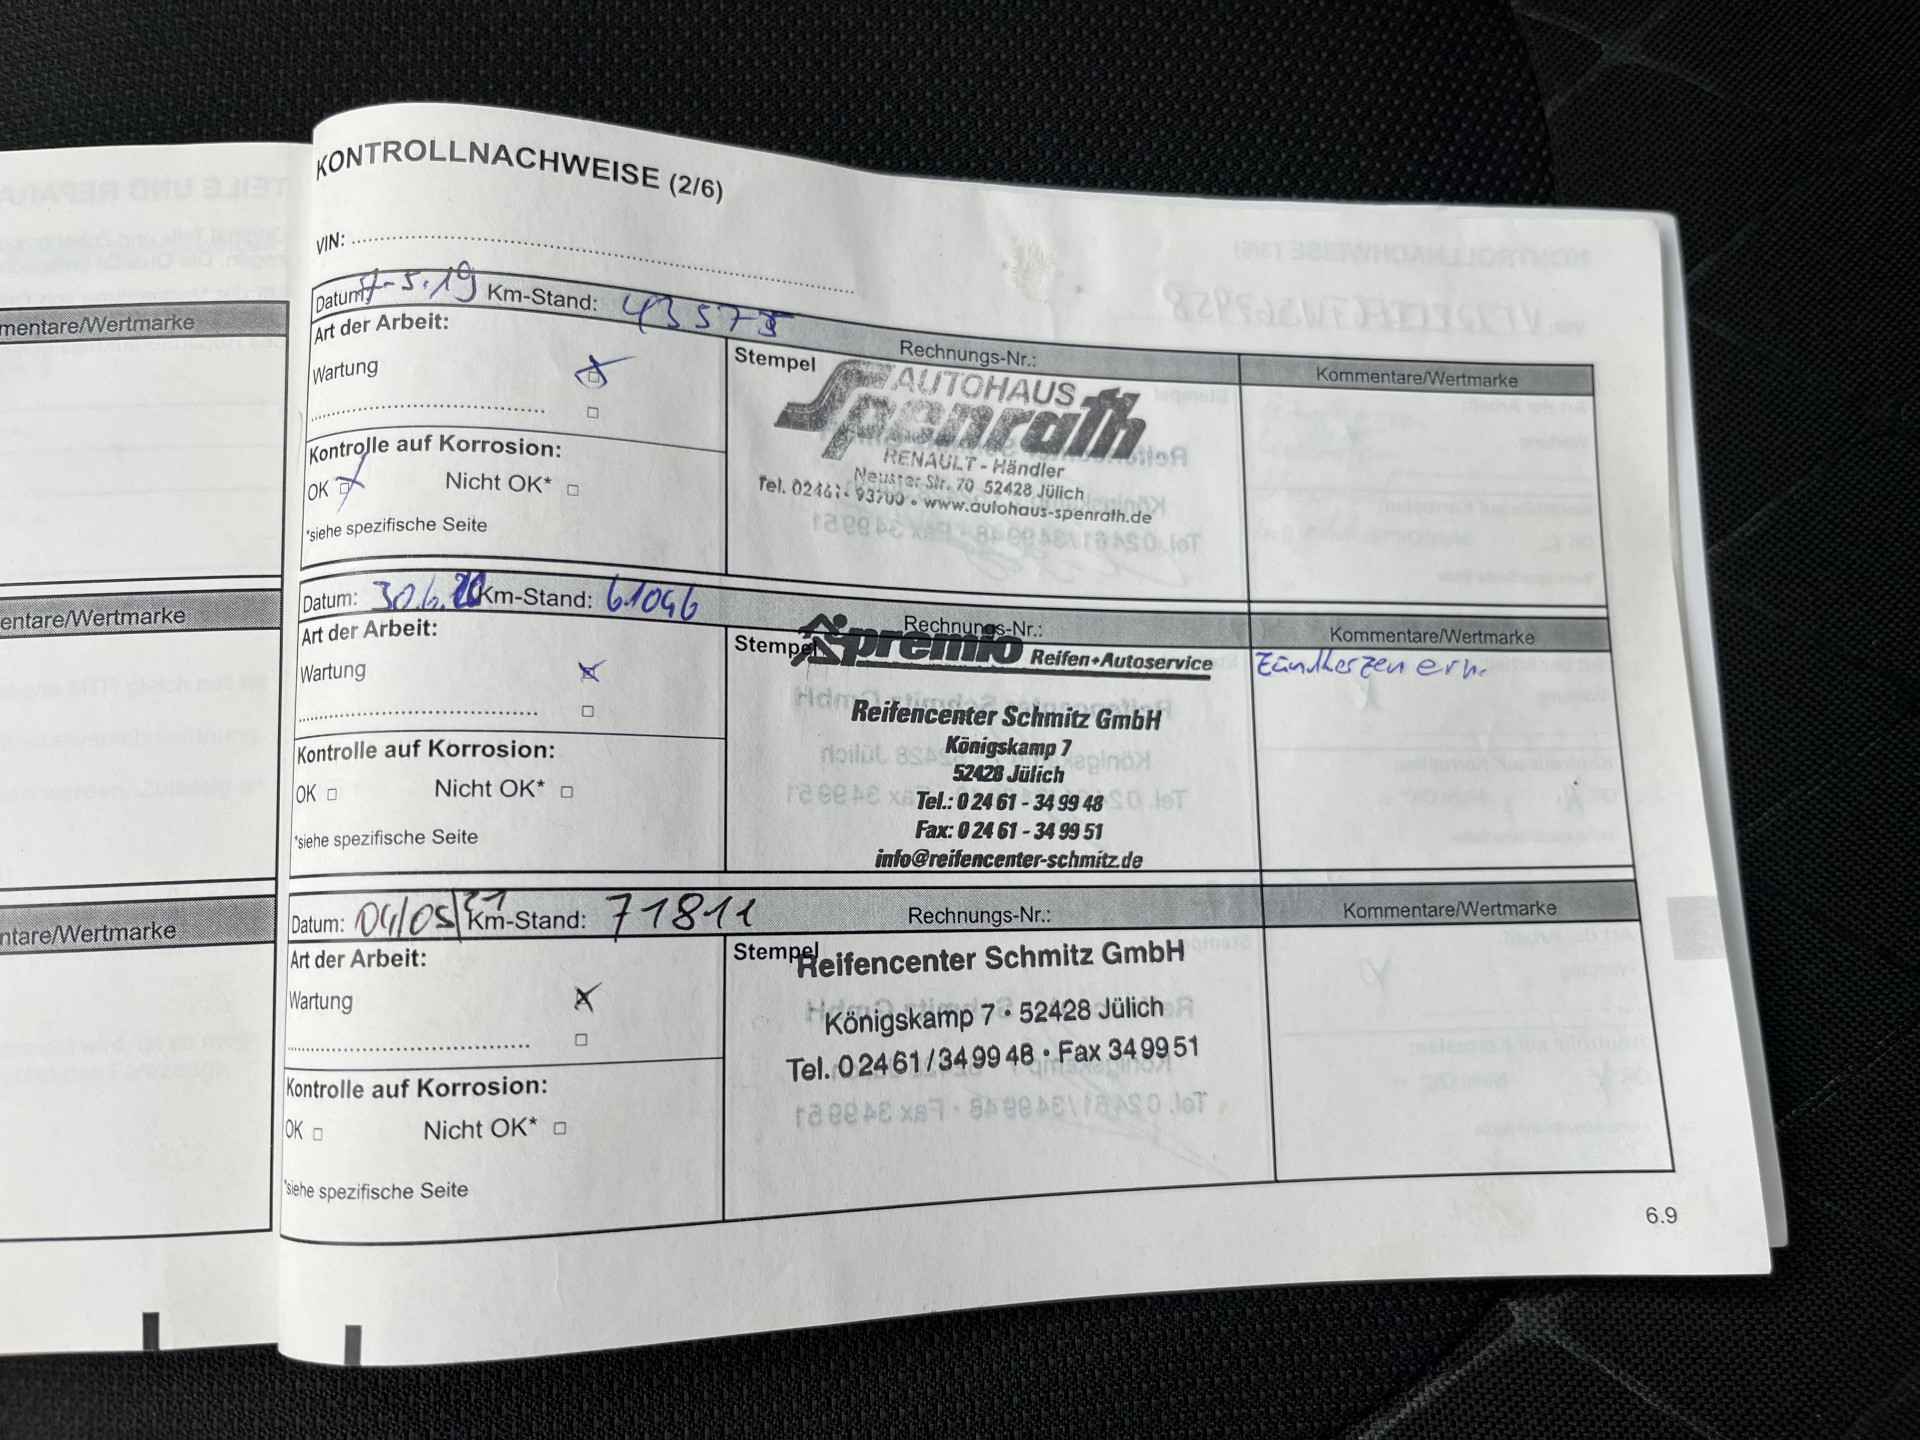 KONTROLLNACHWEISE (2/6)
VIN:
Datum: 7-5.19 Km-Stand: 43573
Rechnungs-Nr.:
Kommentare/Wertmarke
Art der Arbeit:
Wartung
Stempel
AUTOHAUS
Spenrath
RENAULT - Händler
Neusser Str. 70 52428 Jülich
Tel. 02461 - 93700 • www.autohaus-spenrath.de
Kontrolle auf Korrosion:
OK Nicht OK*
*siehe spezifische Seite
Datum: 30.6.20 Km-Stand: 61046
Rechnungs-Nr.:
Kommentare/Wertmarke
Art der Arbeit:
Wartung
Stempel
premio Reifen+Autoservice
Reifencenter Schmitz GmbH
Königskamp 7
52428 Jülich
Tel.: 0 24 61 - 34 99 48
Fax: 0 24 61 - 34 99 51
info@reifencenter-schmitz.de
Zündkerzen ern.
Kontrolle auf Korrosion:
OK Nicht OK*
*siehe spezifische Seite
Datum: 04/05/21 Km-Stand: 71811
Rechnungs-Nr.:
Kommentare/Wertmarke
Art der Arbeit:
Wartung
Stempel
Reifencenter Schmitz GmbH
Königskamp 7 • 52428 Jülich
Tel. 0 24 61 / 34 99 48 • Fax 34 99 51
Kontrolle auf Korrosion:
OK Nicht OK*
*siehe spezifische Seite
6.9
mentare/Wertmarke
entare/Wertmarke
ntare/Wertmarke